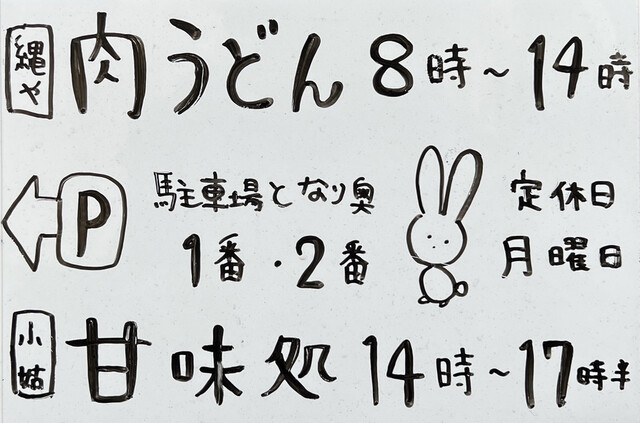 縄や 肉うどん 8時~14時
P 駐車場となり奥 定休日
1番・2番 月曜日
小姑 甘味処 14時~17時半